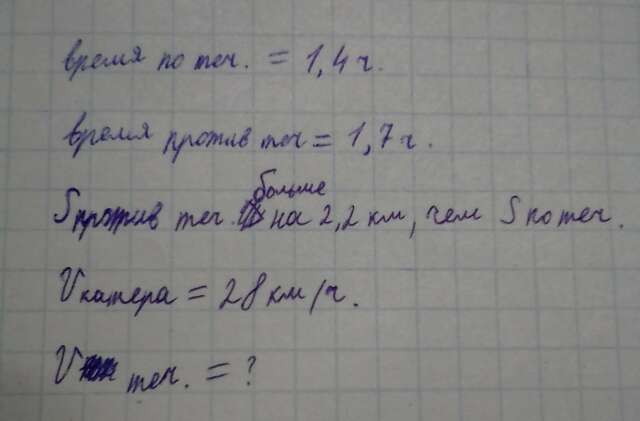 время по теч. = 1,4 ч.
время против теч = 1,7 ч.
S против теч. больше на 2,2 км, чем S по теч.
V катера = 28 км/ч.
V теч. = ?